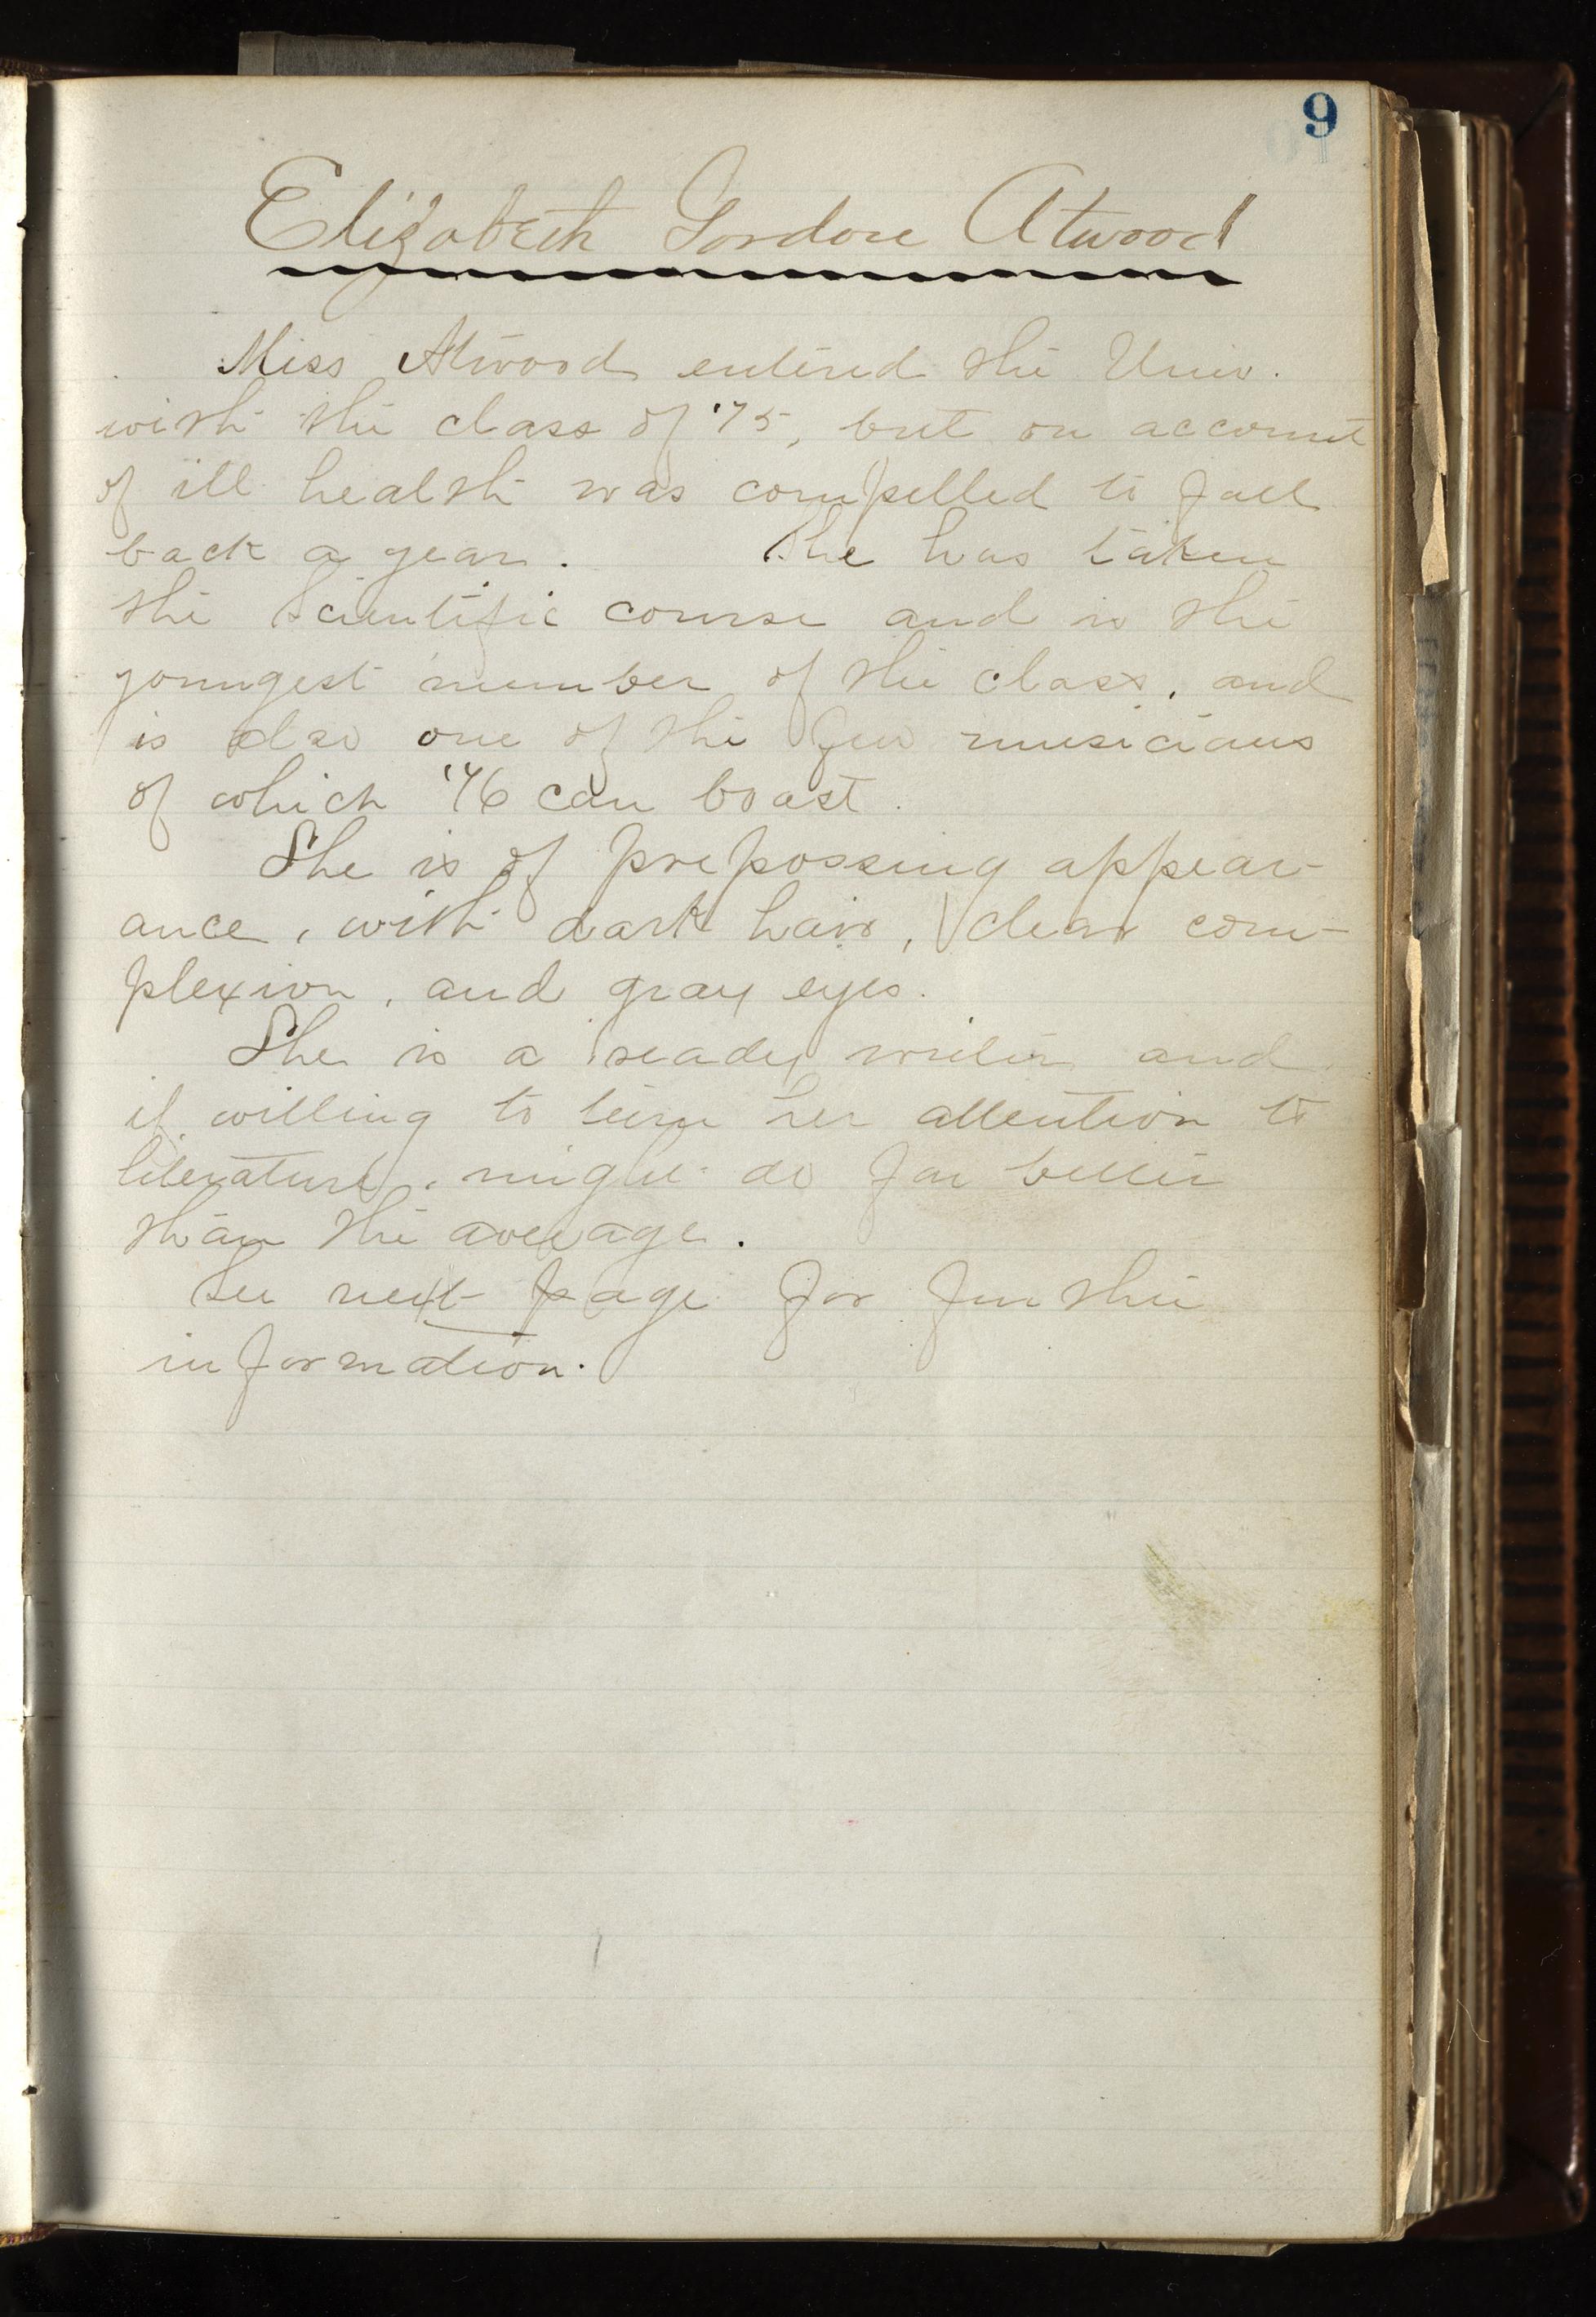 9
Elizabeth Gordon Atwood
Miss Atwood entered the Univ.
with the class of '75, but on account
of ill health was compelled to fall
back a year. She has taken
the Scientific course and is the
youngest member of the class, and
is also one of the few musicians
of which '76 can boast.
She is of prepossing appear-
ance, with dark hair, clear com-
plexion, and gray eyes.
She is a ready writer and
if willing to turn her attention to
literature, might do far better
than the average.
See next page for further
information.